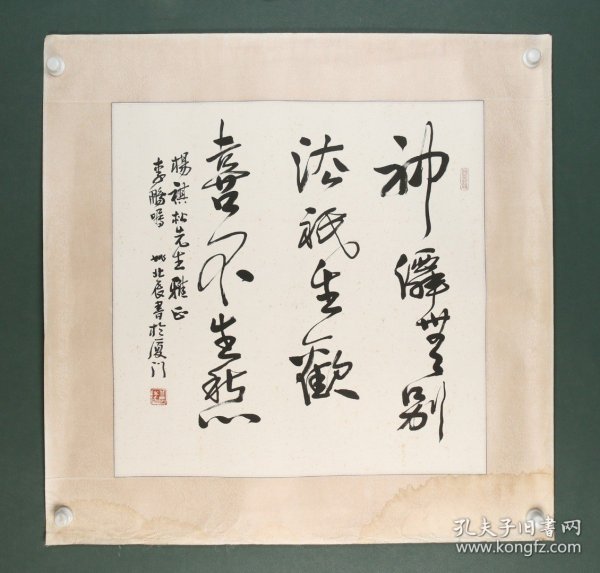 神僊無別
法祇生歡
喜不生愁
楊祺松先生雅正
李鵬
北辰書於厦门
孔夫子旧书网
www.kongfz.com